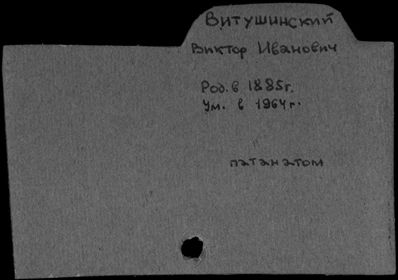 Витушинский
Виктор Иванович
Род. в 1885г.
Ум. в 1964г.
патанатом